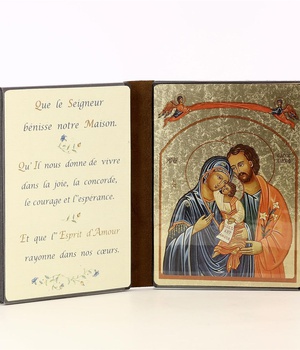 Que le Seigneur
bénisse notre Maison.
Qu'Il nous donne de vivre
dans la joie, la concorde,
le courage et l'esperance.
Et que l'Esprit d'Amour
rayonne dans nos cœurs.